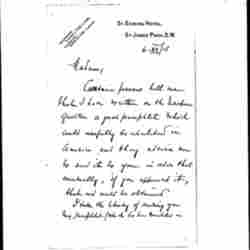 St. Ermin's Hotel,
St. James' Park, S.W.
Madam,
Certain persons tell me
that I have written on the
Question a good pamphlet which
could usefully be circulated in
America and they advise me
to send it to you in order that
eventually, if you approved it,
that end could be obtained
I take the liberty of sending you
my pamphlet